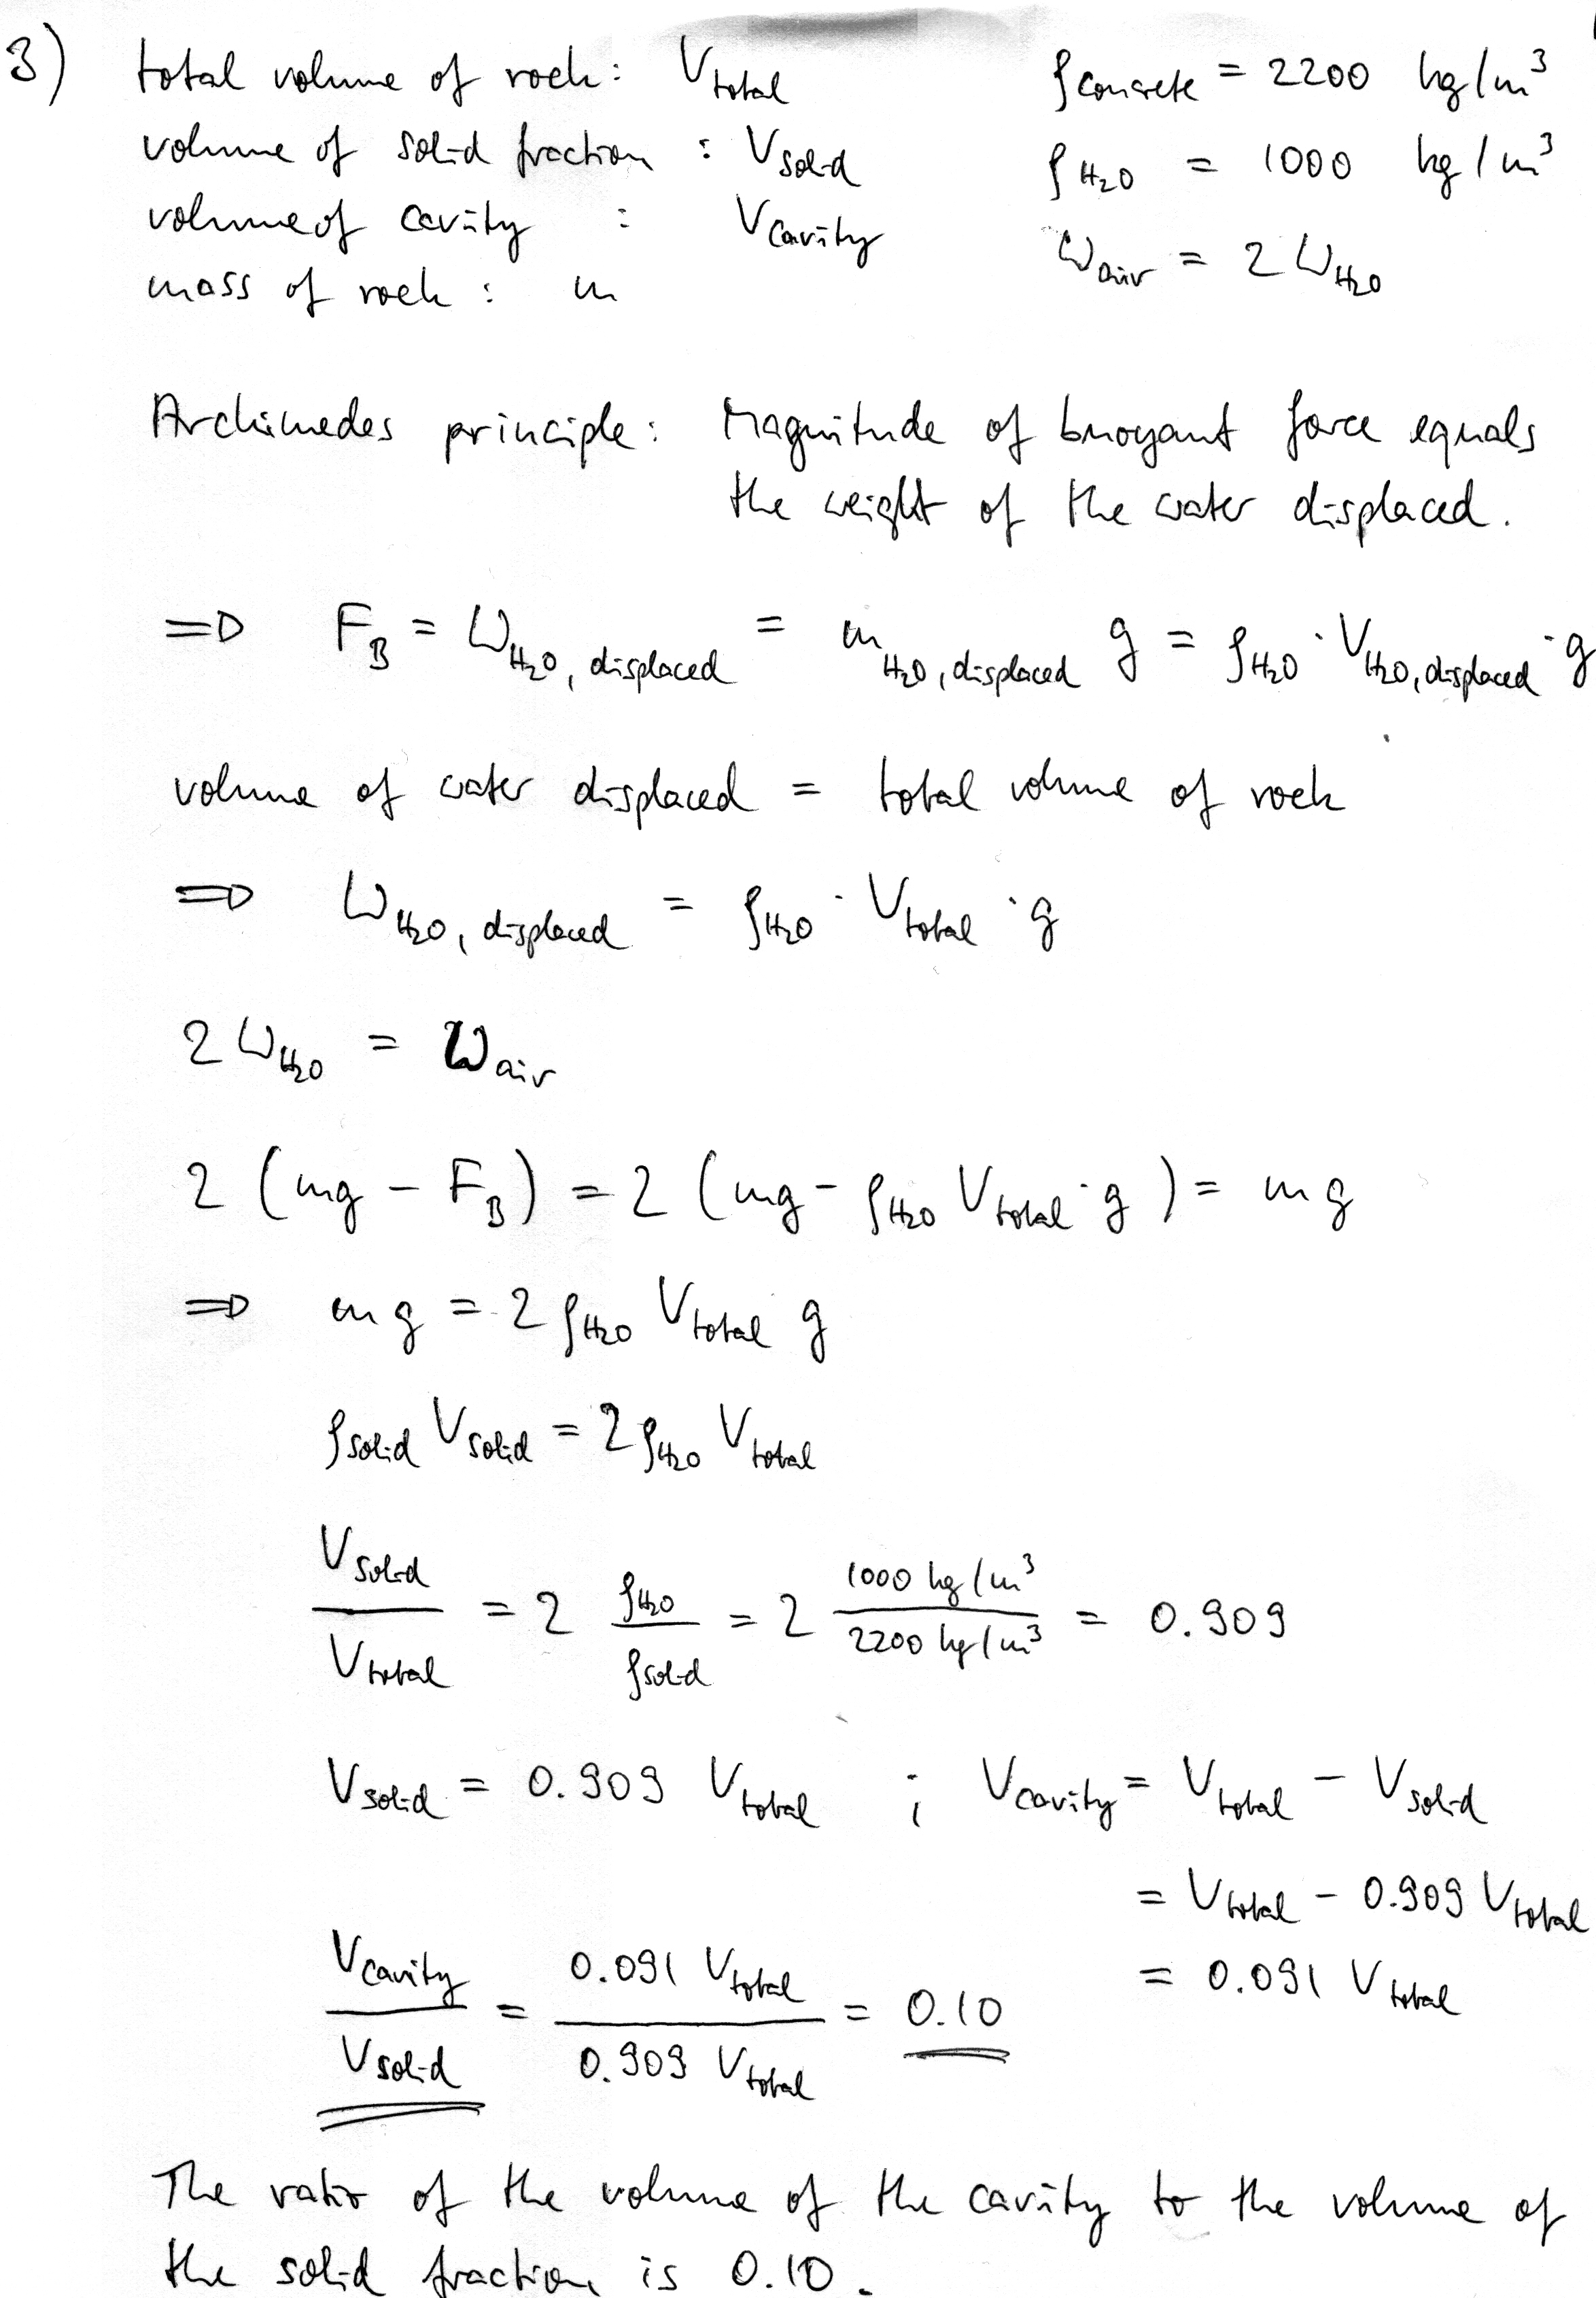 3) total volume of rock: V_total    ρ_concrete = 2200 kg/m³
volume of solid fraction : V_solid    ρ_H₂O = 1000 kg/m³
volume of cavity : V_cavity    W_air = 2 W_H₂O
mass of rock : m
Archimedes principle: Magnitude of buoyant force equals
the weight of the water displaced.
=> F_B = W_H₂O, displaced = m_H₂O, displaced g = ρ_H₂O · V_H₂O, displaced · g
volume of water displaced = total volume of rock
=> W_H₂O, displaced = ρ_H₂O · V_total · g
2 W_H₂O = W_air
2 (mg − F_B) = 2 (mg − ρ_H₂O V_total · g) = mg
=> mg = 2 ρ_H₂O V_total g
ρ_solid V_solid = 2 ρ_H₂O V_total
V_solid / V_total = 2 ρ_H₂O / ρ_solid = 2 1000 kg/m³ / 2200 kg/m³ = 0.909
V_solid = 0.909 V_total ; V_cavity = V_total − V_solid
= V_total − 0.909 V_total
= 0.091 V_total
V_cavity / V_solid = 0.091 V_total / 0.909 V_total = 0.10
The ratio of the volume of the cavity to the volume of
the solid fraction is 0.10.